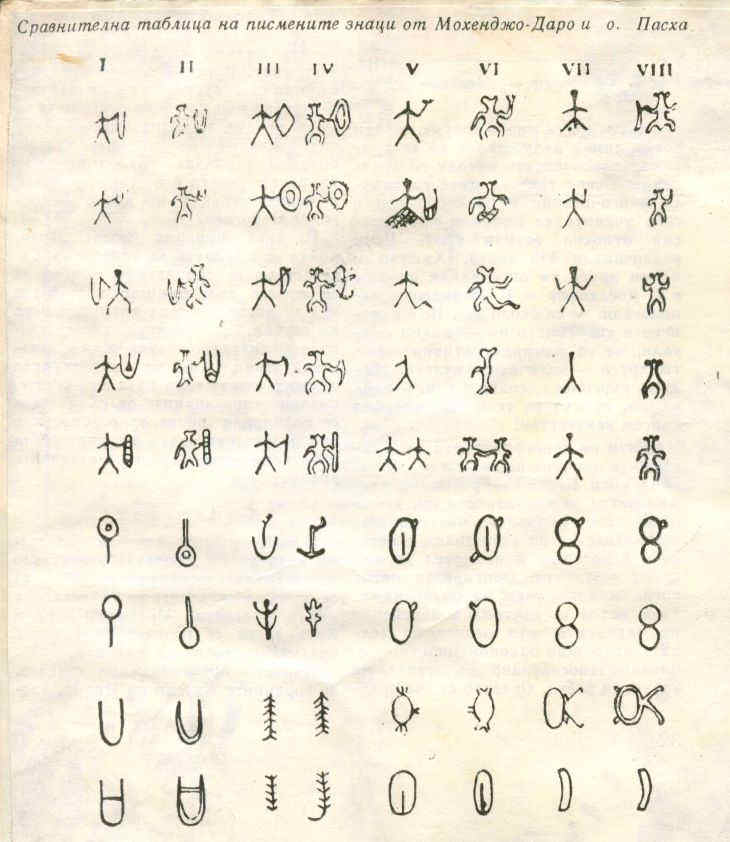 Сравнителна таблица на писмените знаци от Мохенджо-Даро и о. Пасха
I II III IV V VI VII VIII